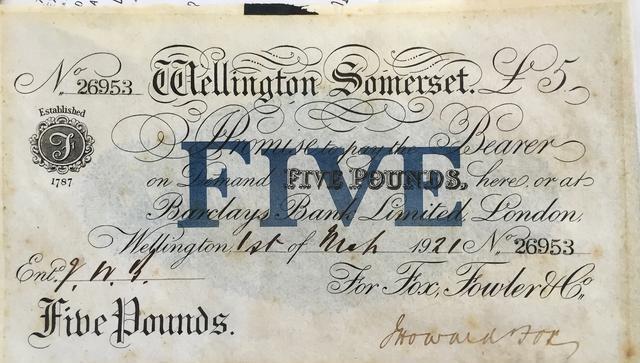 No. 26953 Wellington Somerset. £5
Established
F
1787
I Promise to pay the Bearer
on Demand FIVE POUNDS, here, or at
FIVE
Barclays Bank Limited, London.
Wellington, 1st of March 1921 No. 26953
Entd. J. W. G.
For Fox, Fowler & Co.
Five Pounds.
J Howard Fox